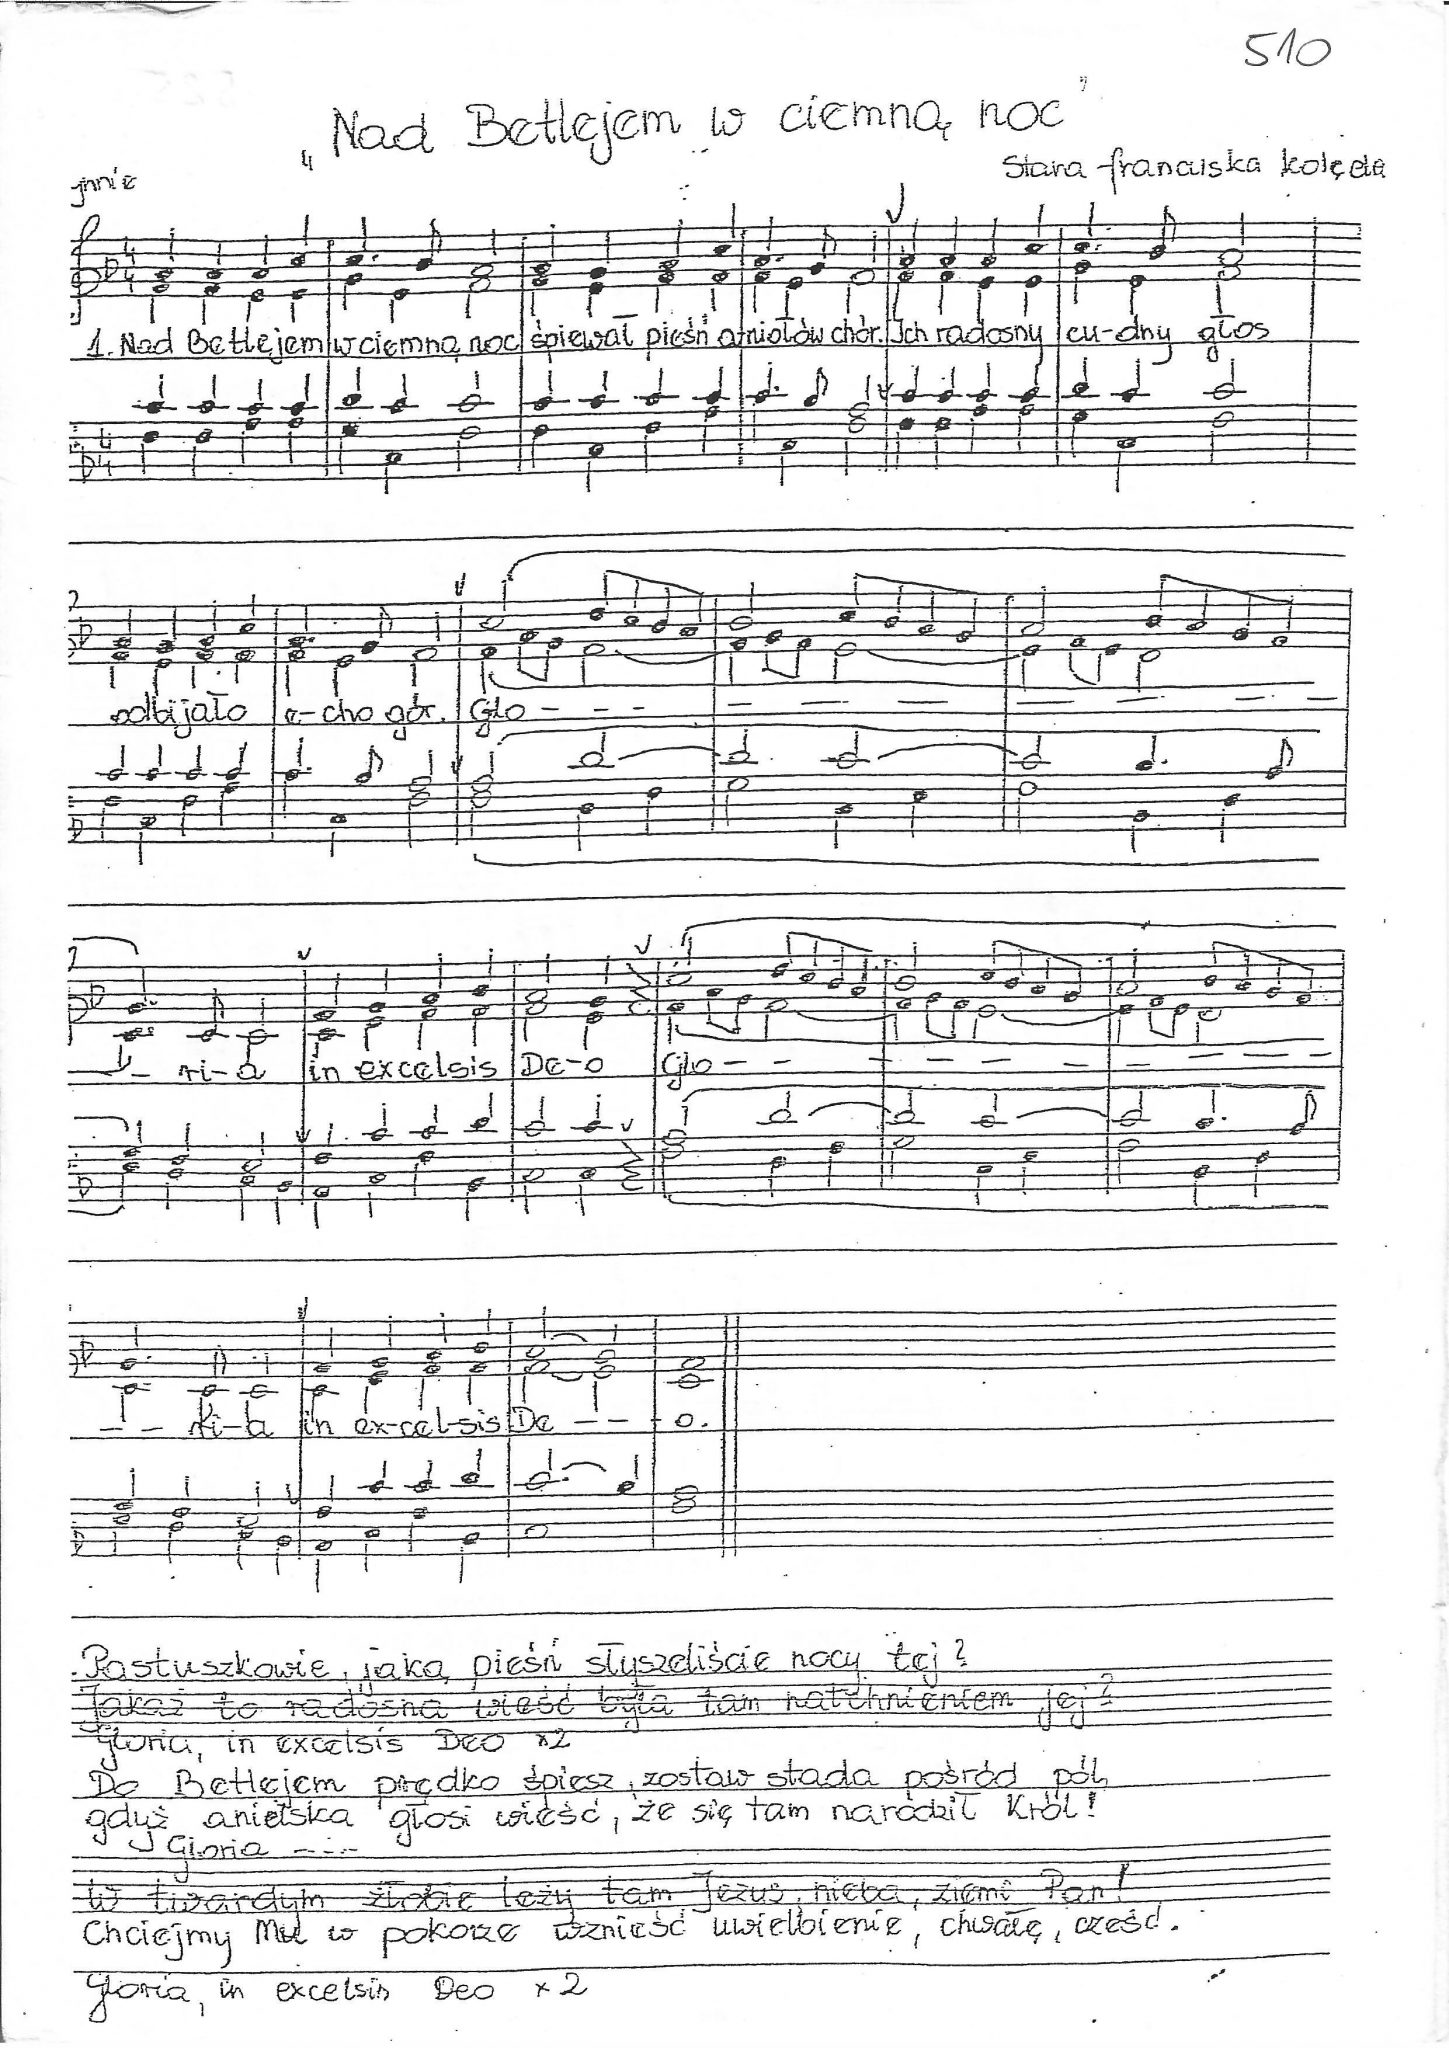 510
„Nad Betlejem w ciemną noc”
Stara francuska kolęda
1. Nad Betlejem w ciemną noc śpiewał pieśń aniołów chór. Ich radosny cu-dny głos
odbijało e-cho gór. Glo - - -
- ri-a in excelsis De-o Glo - - -
- - ri-a in ex-cel-sis De - - - o.
Pastuszkowie, jaką pieśń słyszeliście nocy tej?
Jakaż to radosna wieść była tam natchnieniem jej?
Gloria, in excelsis Deo x2
Do Betlejem prędko śpiesz, zostaw stada pośród pól,
gdyż anielska głosi wieść, że się tam narodził Król!
Gloria - - -
W twardym żłobie leży tam Jezus, nieba, ziemi Pan!
Chciejmy Mu w pokorze wznieść uwielbienie, chwałę, cześć.
Gloria, in excelsis Deo x2